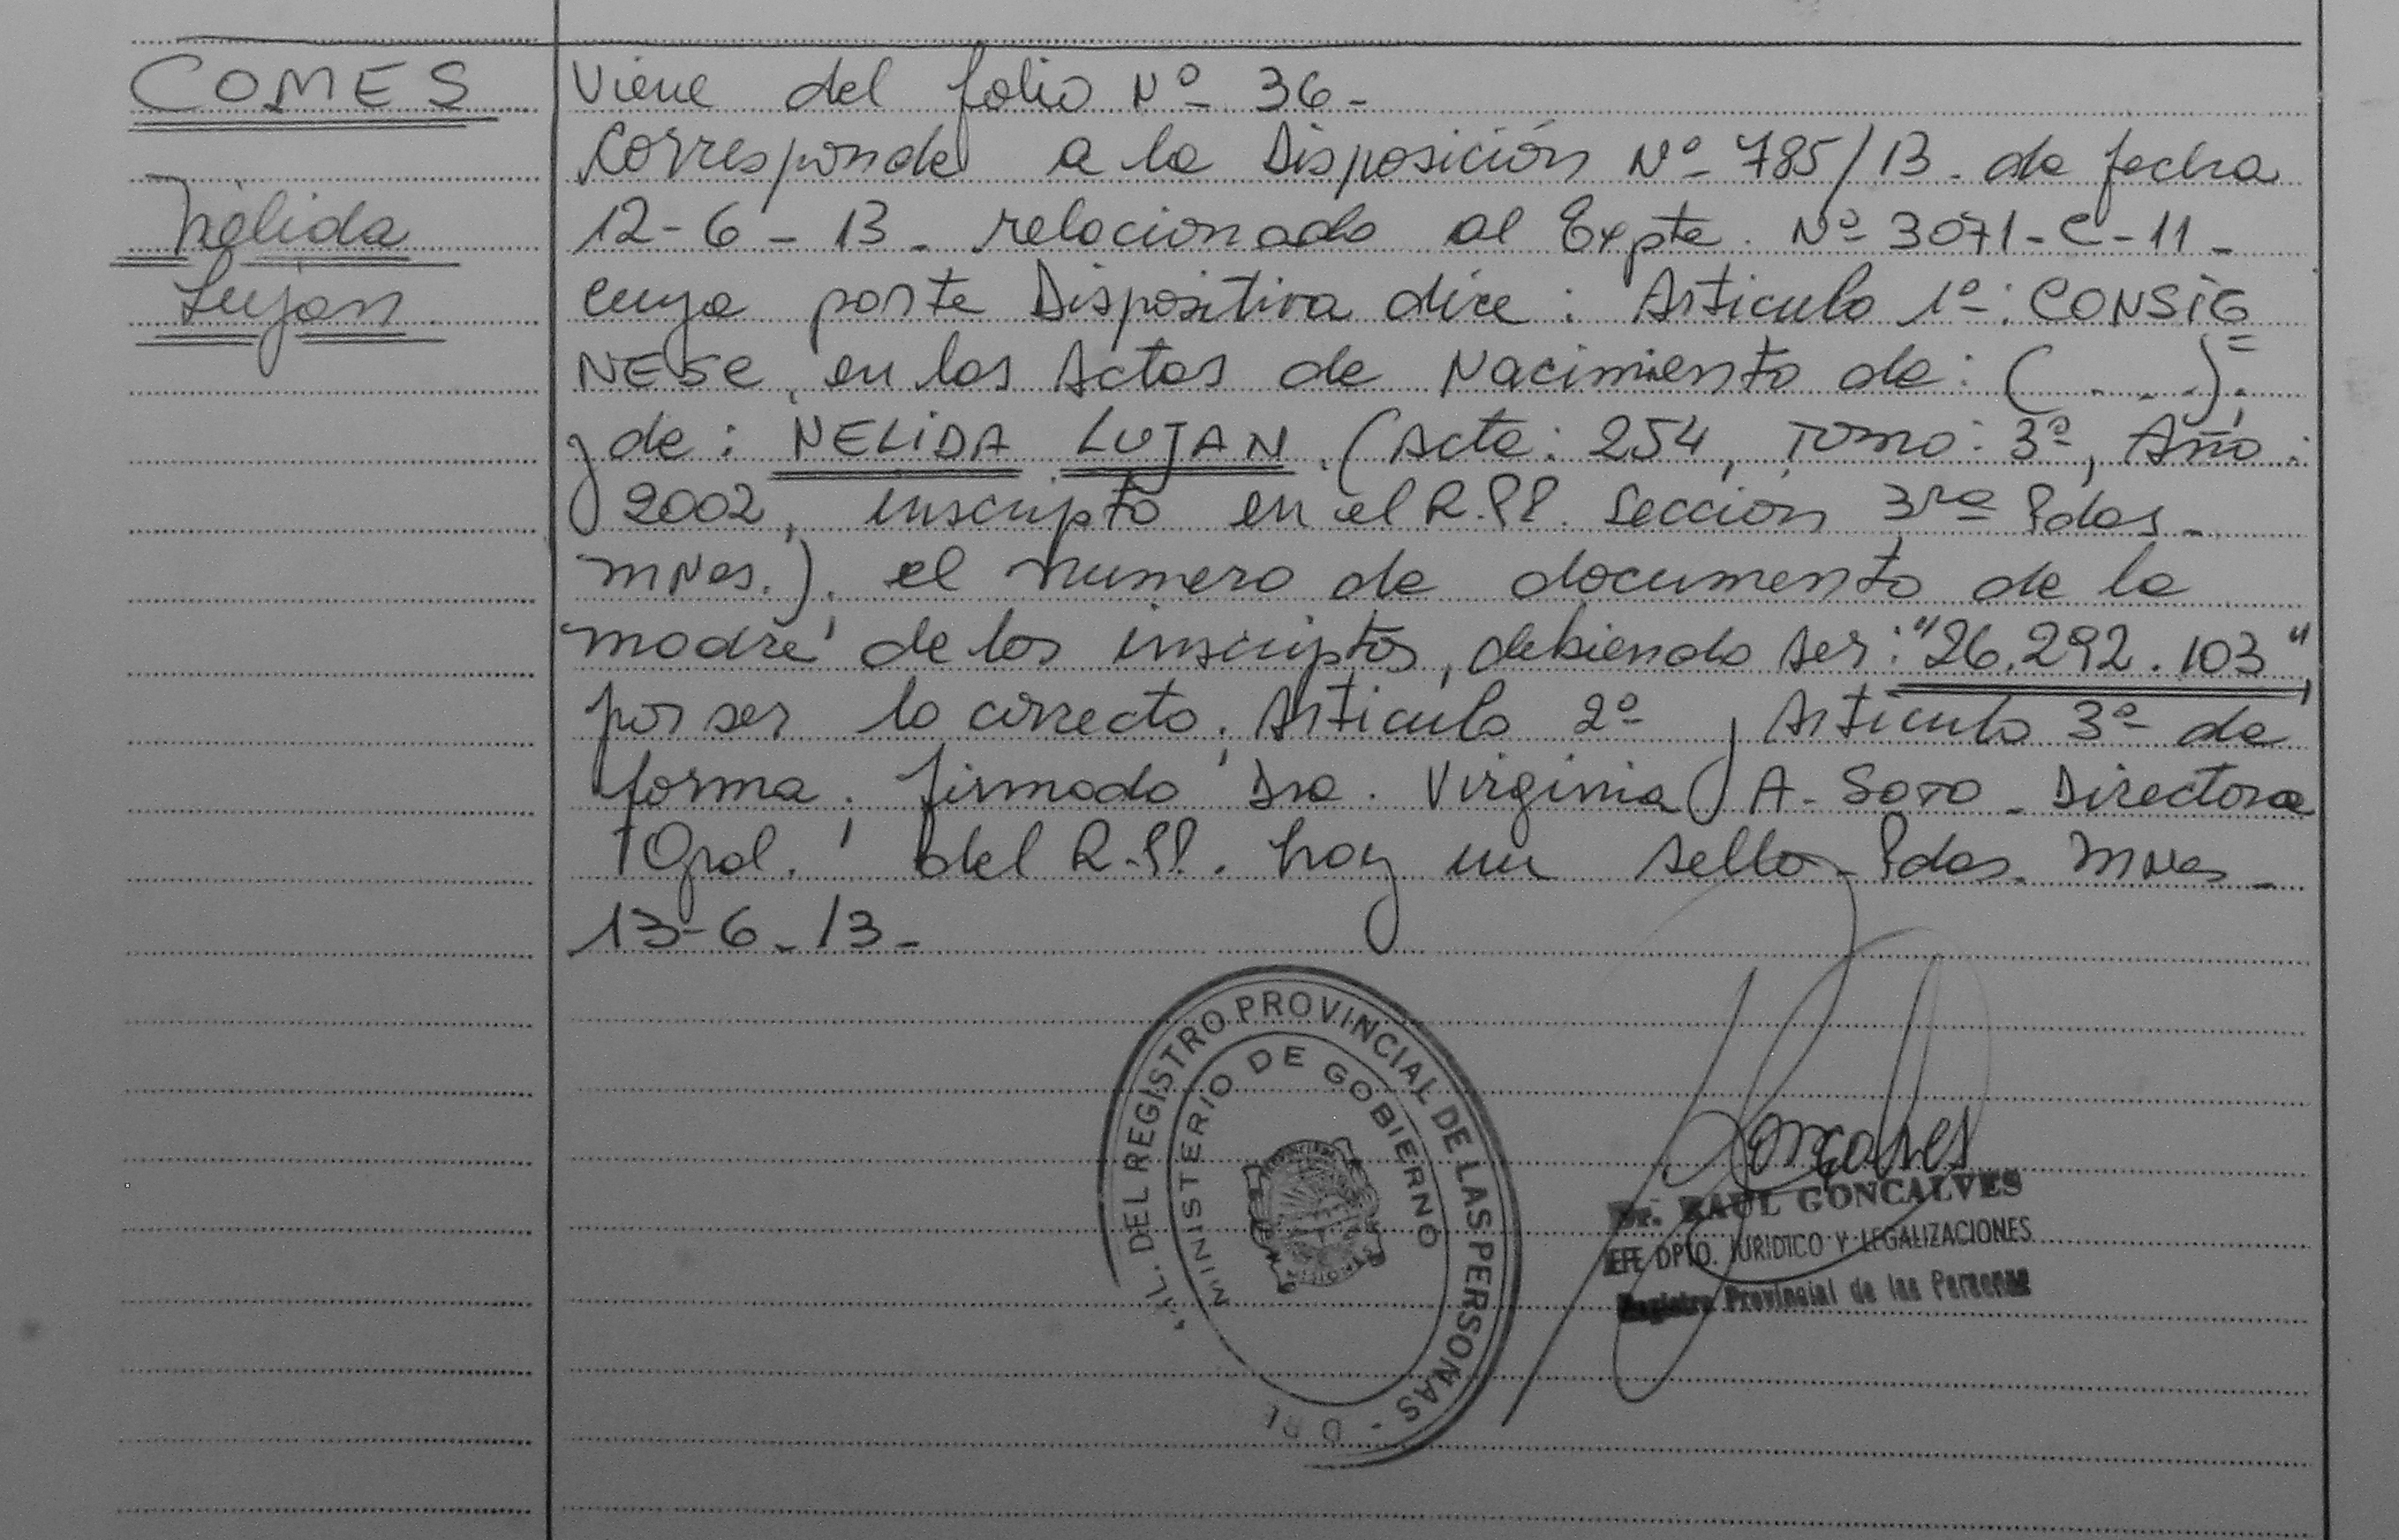 COMES
Nélida
Luján
Viene del folio Nº 36-
Corresponde a la Disposición Nº 785/13. de fecha
12-6-13. relacionado al Expte. Nº 3071-C-11-
cuya parte Dispositiva dice: Articulo 1º: CONSIG=
NESE, en las Actas de Nacimiento de: (....).
y de: NELIDA LUJAN. (Acta: 254, Tomo: 3º, Año:
2002, inscripto en el R.PP. Sección 3ra Pdas-
MNes.), el numero de documento de la
madre de los inscriptos, debiendo ser: "26.292.103",
por ser lo correcto; Articulo 2º y Articulo 3º de
forma; firmado Dra. Virginia A. Soto - Directora
Gral. del R.PP. hay un sello - Pdas. MNes-
13-6-13-
DEL REGISTRO PROVINCIAL DE LAS PERSONAS -
MINISTERIO DE GOBIERNO
Goncalves
Dr. RAUL GONCALVES
JEFE DPTO. JURIDICO Y LEGALIZACIONES
Registro Provincial de las Personas